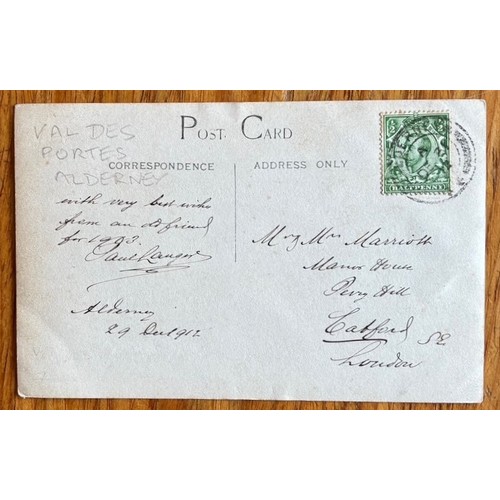 VAL DES
PORTES
ALDERNEY
POST CARD
CORRESPONDENCE
ADDRESS ONLY
with very best wishes
from an old friend
for 1913.
Alderney
29 Dec 1912
HALFPENNY
Mr & Mrs Marriott
Manor House
Perry Hill
Catford
S.E.
London